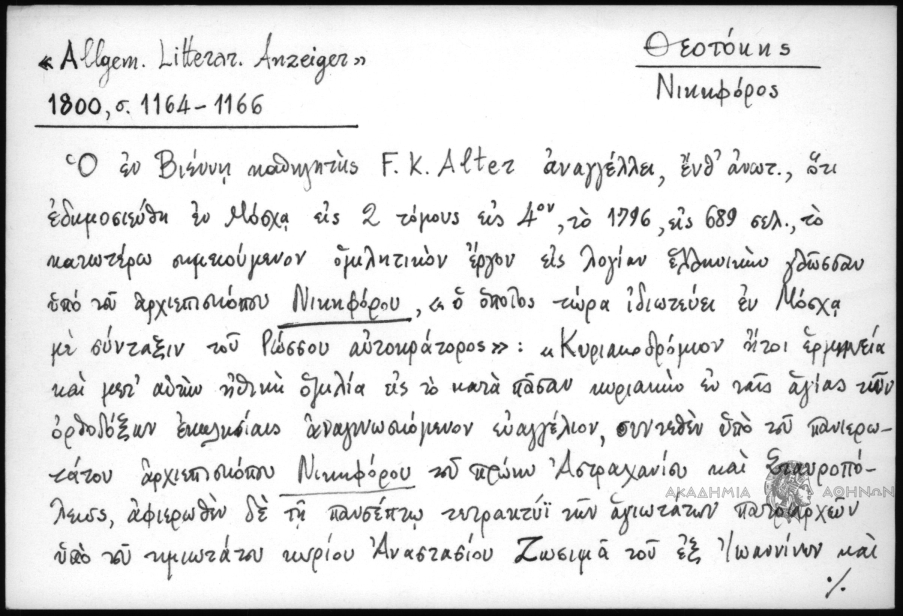 «Allgem. Litterar. Anzeiger»
1800, σ. 1164–1166
Θεοτόκης
Νικηφόρος
Ὁ ἐν Βιέννῃ καθηγητὴς F. K. Alter ἀναγγέλλει, ἔνθ' ἀνωτ., ὅτι
ἐδημοσιεύθη ἐν Μόσχᾳ εἰς 2 τόμους εἰς 4ον, τὸ 1796, εἰς 689 σελ., τὸ
κατωτέρω σημειούμενον ὁμιλητικὸν ἔργον εἰς λογίαν ἑλληνικὴν γλῶσσαν
ὑπὸ τοῦ ἀρχιεπισκόπου Νικηφόρου, «ὁ ὁποῖος τώρα ἰδιωτεύει ἐν Μόσχᾳ
μὲ σύνταξιν τοῦ Ρώσσου αὐτοκράτορος»: «Κυριακοδρόμιον ἤτοι ἑρμηνεία
καὶ μετ' αὐτὴν ἠθικὴ ὁμιλία εἰς τὸ κατὰ πᾶσαν κυριακὴν ἐν ταῖς ἁγίαις τῶν
ὀρθοδόξων ἐκκλησίαις ἀναγινωσκόμενον εὐαγγέλιον, συντεθὲν ὑπὸ τοῦ πανιερω-
τάτου ἀρχιεπισκόπου Νικηφόρου τοῦ πρώην Ἀστραχανίου καὶ Σταυροπό-
λεως, ἀφιερωθὲν δὲ τῇ πανσέπτῳ τετρακτύϊ τῶν ἁγιωτάτων πατριαρχῶν
ὑπὸ τοῦ τιμιωτάτου κυρίου Ἀναστασίου Ζωσιμᾶ τοῦ ἐξ Ἰωαννίνων καὶ
./.
ΑΚΑΔΗΜΙΑ ΑΘΗΝΩΝ